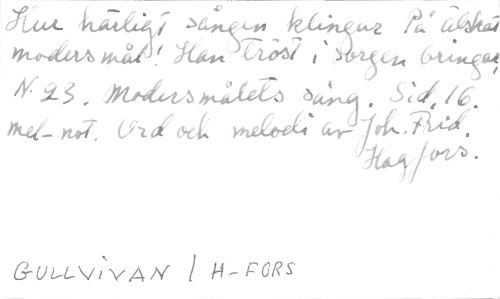 Hur härligt sången klingar På älskat
modersmål! Han tröst i sorgen bringar,
N. 23. Modersmålets sång. Sid. 16.
mel-not. Ord och melodi av Joh. Frid.
Hagfors.
GULLVIVAN / H-FORS